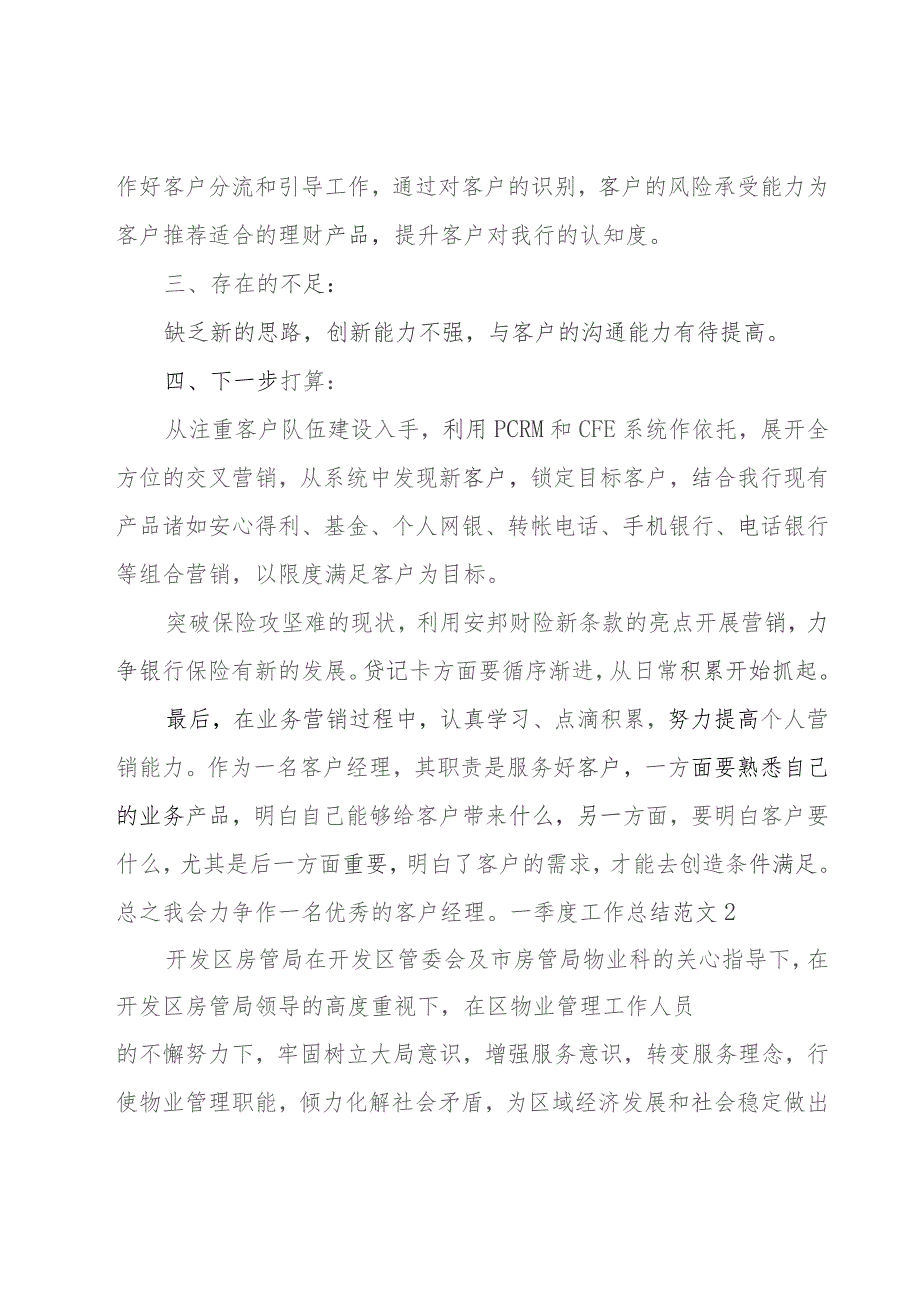 作好客户分流和引导工作，通过对客户的识别，客户的风险承受能力为
客户推荐适合的理财产品，提升客户对我行的认知度。
三、存在的不足：
缺乏新的思路，创新能力不强，与客户的沟通能力有待提高。
四、下一步打算：
从注重客户队伍建设入手，利用PCRM和CFE系统作依托，展开全
方位的交叉营销，从系统中发现新客户，锁定目标客户，结合我行现有
产品诸如安心得利、基金、个人网银、转帐电话、手机银行、电话银行
等组合营销，以限度满足客户为目标。
突破保险攻坚难的现状，利用安邦财险新条款的亮点开展营销，力
争银行保险有新的发展。贷记卡方面要循序渐进，从日常积累开始抓起。
最后，在业务营销过程中，认真学习、点滴积累，努力提高个人营
销能力。作为一名客户经理，其职责是服务好客户，一方面要熟悉自己
的业务产品，明白自己能够给客户带来什么，另一方面，要明白客户要
什么，尤其是后一方面重要，明白了客户的需求，才能去创造条件满足。
总之我会力争作一名优秀的客户经理。一季度工作总结范文2
开发区房管局在开发区管委会及市房管局物业科的关心指导下，在
开发区房管局领导的高度重视下，在区物业管理工作人员
的不懈努力下，牢固树立大局意识，增强服务意识，转变服务理念，行
使物业管理职能，倾力化解社会矛盾，为区域经济发展和社会稳定做出